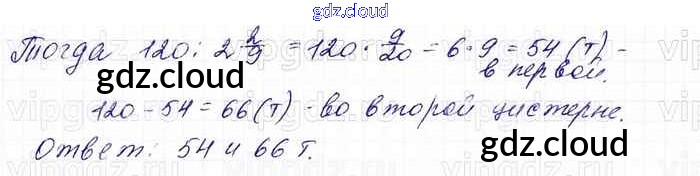 gdz.cloud
Тогда 120 : 2 2/9 = 120 · 9/20 = 6 · 9 = 54 (т) -
в первой.
gdz.cloud
gdz.cloud
120 - 54 = 66 (т) - во второй цистерне.
Ответ: 54 и 66 т.
gdz.cloud
gdz.cloud